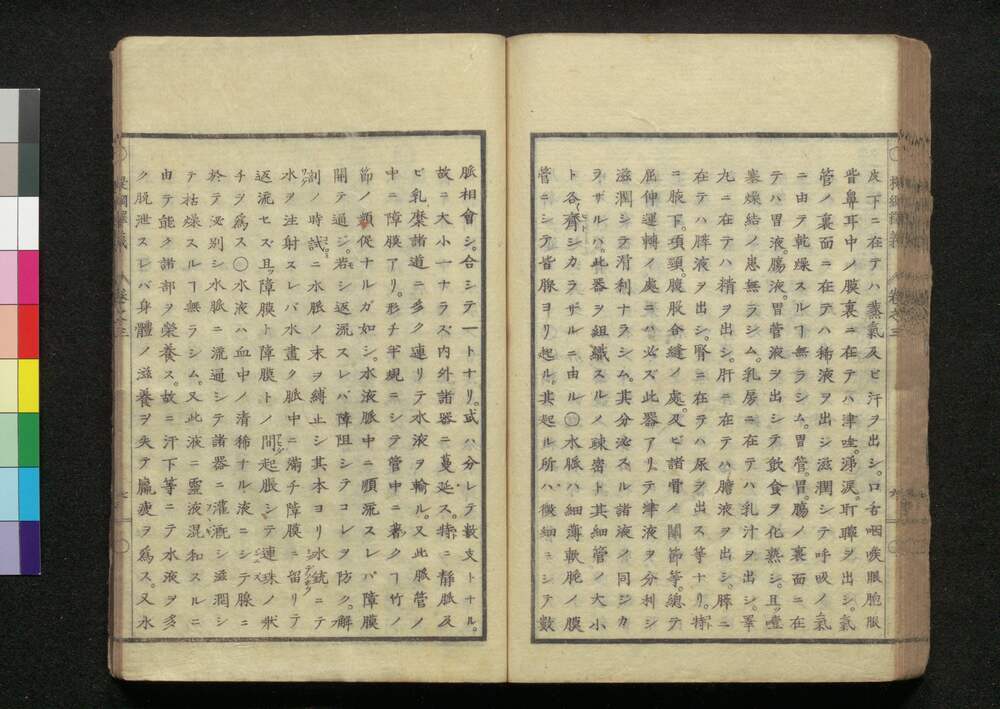 皮下ニ在テハ蒸氣及ビ汗ヲ出シ。口舌咽喉眼胞眼
眥鼻耳中ノ膜裏ニ在テハ津唾。涕涙。耵聹ヲ出シ。氣
管ノ裏面ニ在テハ稀液ヲ出シ滋潤シテ呼吸ノ氣
ニ由テ乾燥スルヿ無ラシム。胃管。胃。腸ノ裏面ニ在
テハ胃液。腸液。胃管液ヲ出シテ飲食ヲ化熟シ。且ッ
燥結ノ患無ラシム。乳房ニ在テハ乳汁ヲ出シ。睪
丸ニ在テハ精ヲ出シ。肝ニ在テハ膽液ヲ出シ。膵ニ
在テハ膵液ヲ出シ。腎ニ在テハ尿ヲ出ス等ナリ。特
ニ腋下。項頸。腹股合縫ノ處。及ビ諸骨ノ關節等。總テ
屈伸運轉ノ處ニハ必ズ此器アリテ津液ヲ分利シ
滋潤シテ滑利ナラシム。其分泌スル諸液ノ同ジカ
ラザルハ。此器ヲ組織スルノ疎密ト其細管ノ大小
ト各齊シカラザルニ由ル〇水脈ハ細薄軟脆ノ膜
管ニシテ皆腺ヨリ起ル。其起ル所ハ微細ニシテ數
脈相會シ。合シテ一トナリ。或ハ分レテ數支トナル。
故ニ大小一ナラズ内外諸器ニ蔓延ス。特ニ靜脈及
ビ乳糜諸道ニ多ク連リテ水液ヲ輸ル。又此脈管ノ
中ニ障膜アリ。形チ半規ニシテ管中ニ著クヿ竹ノ
節ノ順從ナルガ如シ。水液脈中ニ順流スレバ障膜
開テ通ジ。若シ返流スレバ障阻シテコレヲ防ク。解
剖ノ時試ニ水脈ノ末ヲ縛止シ其本ヨリ水銃ニテ
水ヲ注射スレバ水盡ク脈中ニ滿チ障膜ニ留リテ
返流セズ且ッ障膜ト障膜トノ間起脹シテ連珠ノ狀
チヲ爲ス〇水液ハ血中ノ清稀ナル液ニシテ腺ニ
於テ泌別シ水脈ニ流通シテ諸器ニ灌漑シ滋潤シ
テ枯燥スルヿ無ラシム。又此液ニ靈液混和スルニ
由テ能ク諸部ヲ榮養ス。故ニ汗下等ニテ水液ヲ多
ク脱泄スレバ身體ノ滋養ヲ失テ羸瘦ヲ爲ス。又水